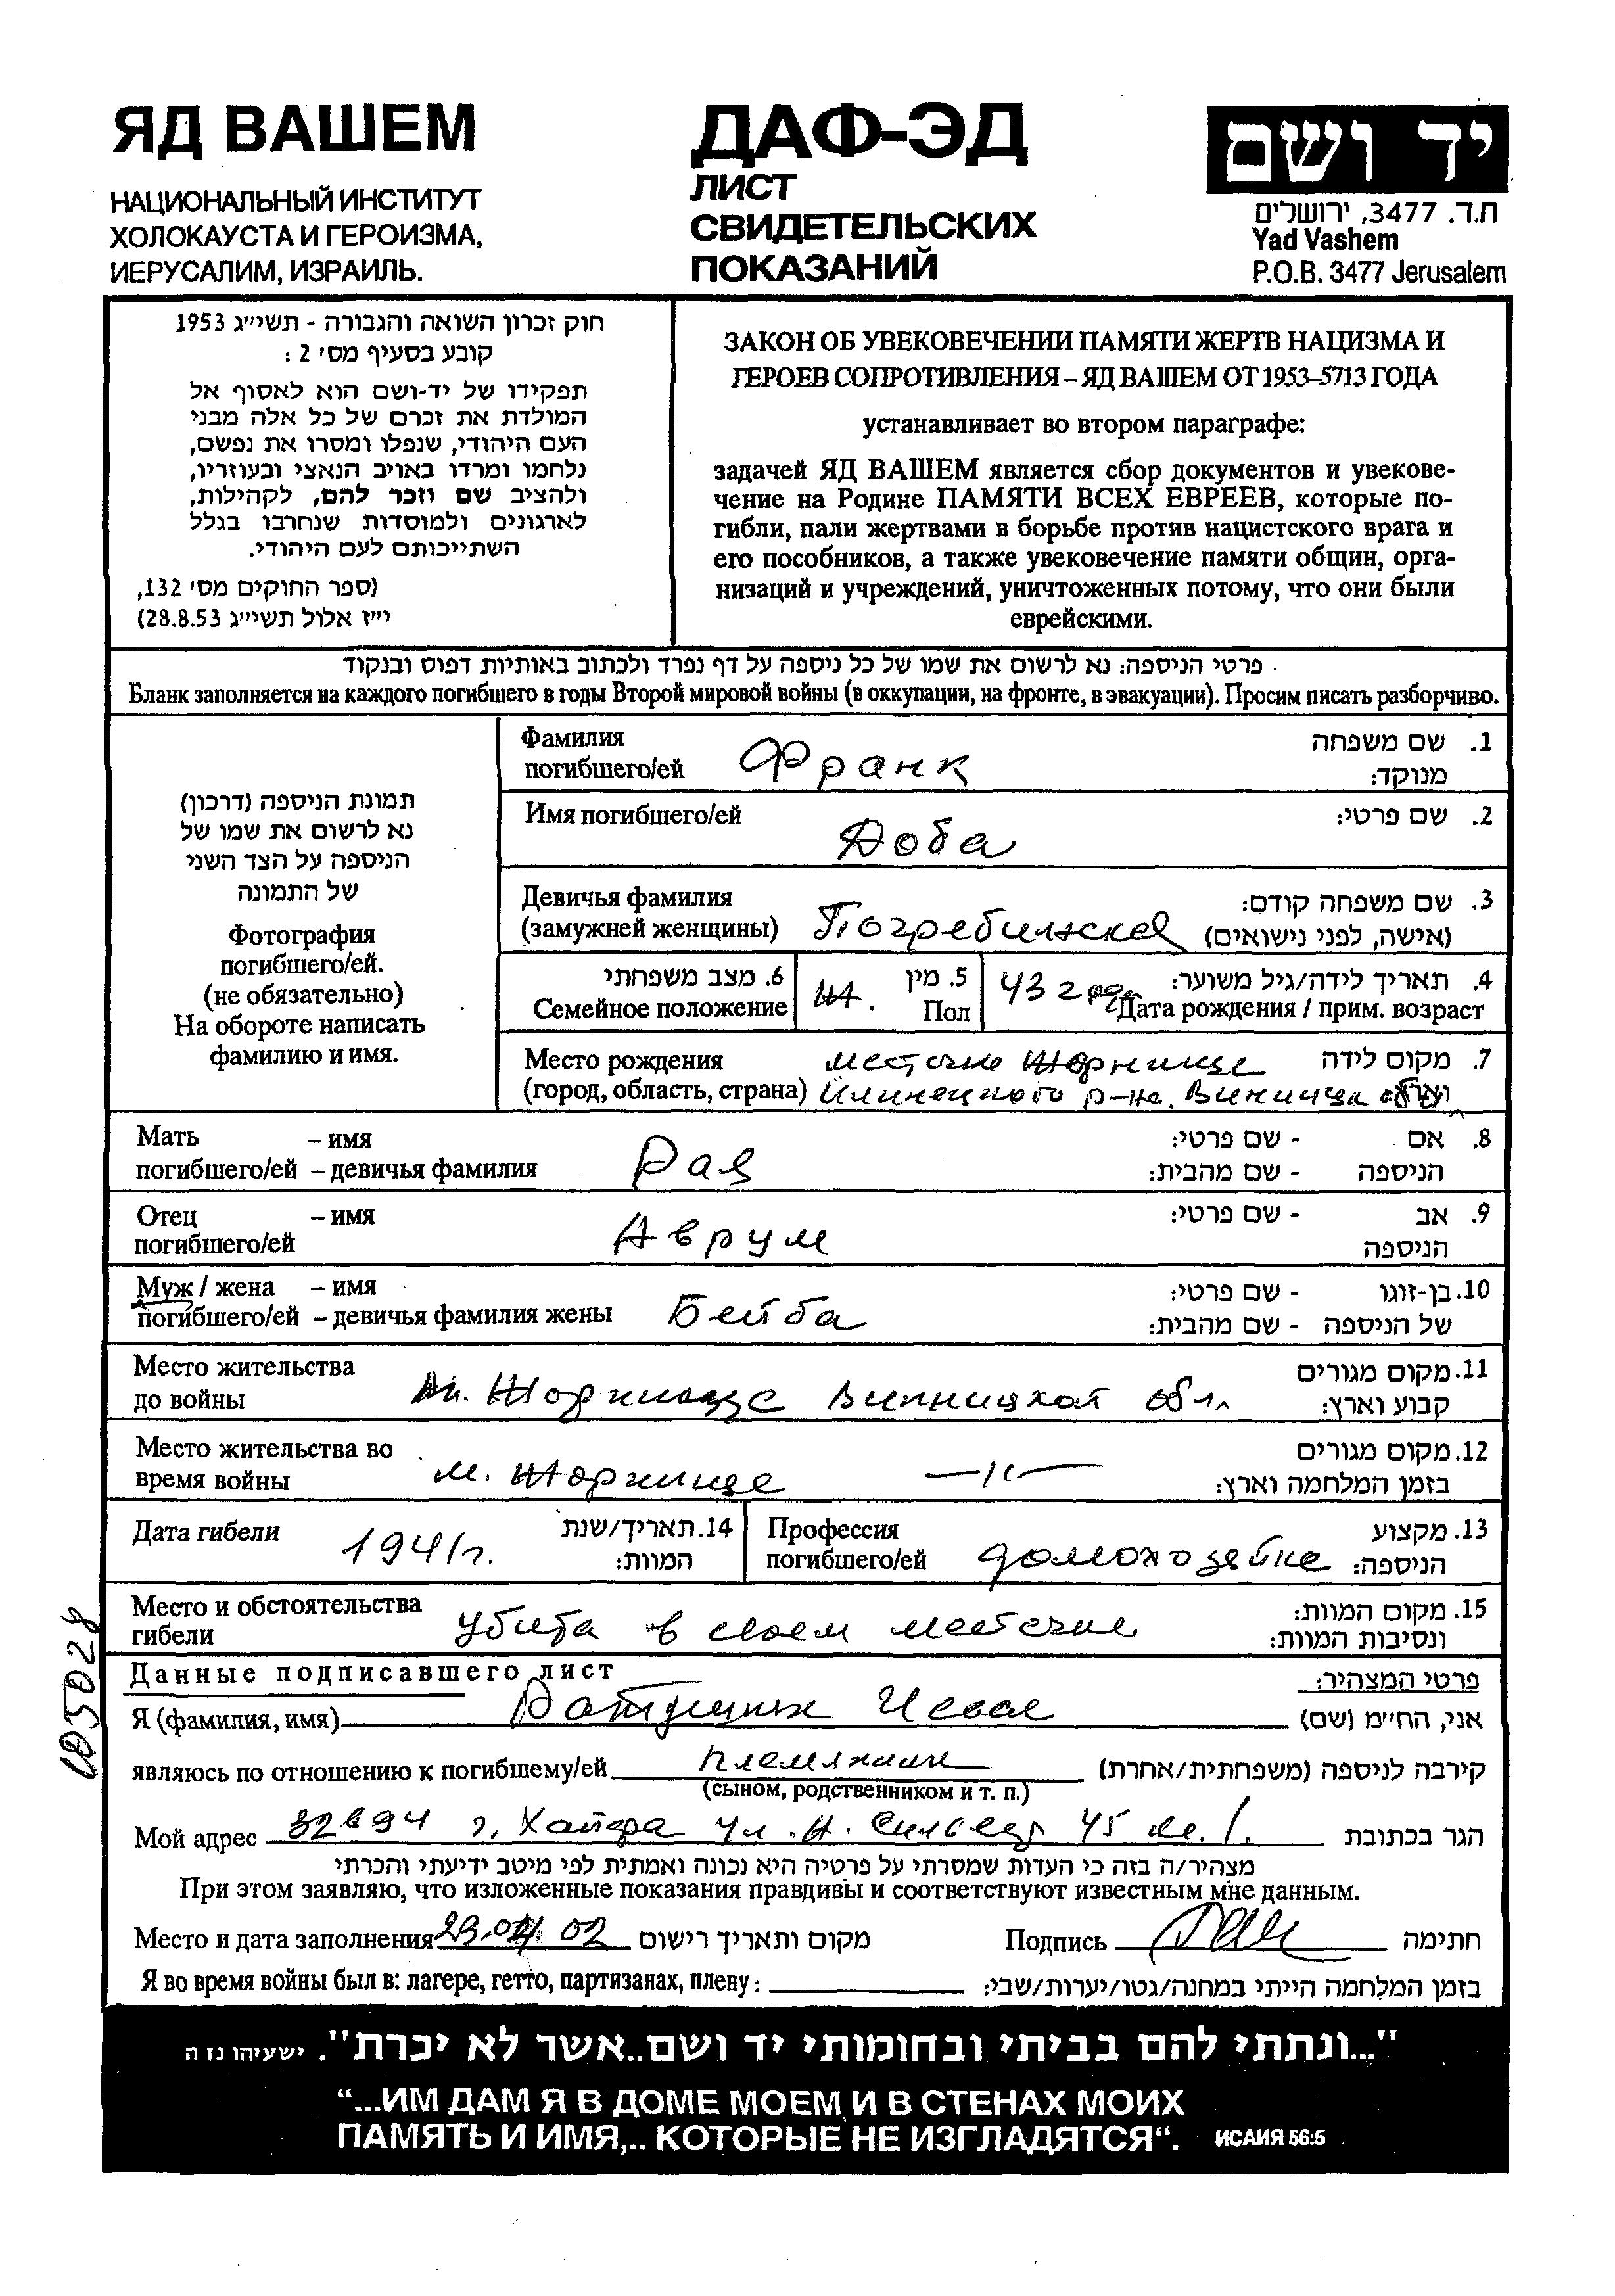 ЯД ВАШЕМ
НАЦИОНАЛЬНЫЙ ИНСТИТУТ
ХОЛОКАУСТА И ГЕРОИЗМА,
ИЕРУСАЛИМ, ИЗРАИЛЬ.
ДАФ-ЭД
ЛИСТ
СВИДЕТЕЛЬСКИХ
ПОКАЗАНИЙ
יד ושם
ת.ד. 3477, ירושלים
Yad Vashem
P.O.B. 3477 Jerusalem
חוק זכרון השואה והגבורה - תשי״ג 1953
קובע בסעיף מס׳ 2 :
תפקידו של יד-ושם הוא לאסוף אל
המולדת את זכרם של כל אלה מבני
העם היהודי, שנפלו ומסרו את נפשם,
נלחמו ומרדו באויב הנאצי ובעוזריו,
ולהציב שם וזכר להם, לקהילות,
לארגונים ולמוסדות שנחרבו בגלל
השתייכותם לעם היהודי.
(ספר החוקים מס׳ 132,
י״ז אלול תשי״ג 28.8.53)
ЗАКОН ОБ УВЕКОВЕЧЕНИИ ПАМЯТИ ЖЕРТВ НАЦИЗМА И
ГЕРОЕВ СОПРОТИВЛЕНИЯ – ЯД ВАШЕМ ОТ 1953–5713 ГОДА
устанавливает во втором параграфе:
задачей ЯД ВАШЕМ является сбор документов и увекове-
чение на Родине ПАМЯТИ ВСЕХ ЕВРЕЕВ, которые по-
гибли, пали жертвами в борьбе против нацистского врага и
его пособников, а также увековечение памяти общин, орга-
низаций и учреждений, уничтоженных потому, что они были
еврейскими.
פרטי הניספה: נא לרשום את שמו של כל ניספה על דף נפרד ולכתוב באותיות דפוס ובנקוד
Бланк заполняется на каждого погибшего в годы Второй мировой войны (в оккупации, на фронте, в эвакуации). Просим писать разборчиво.
תמונת הניספה (דרכון)
נא לרשום את שמו של
הניספה על הצד השני
של התמונה
Фотография
погибшего/ей.
(не обязательно)
На обороте написать
фамилию и имя.
Фамилия
погибшего/ей Франк
1. שם משפחה
מנוקד:
Имя погибшего/ей Доба 2. שם פרטי:
Девичья фамилия
(замужней женщины) Погребинская
3. שם משפחה קודם:
(אישה, לפני נישואים)
6. מצב משפחתי
Семейное положение
5. מין
Пол
ж.
4. תאריך לידה/גיל משוער:
43 года Дата рождения / прим. возраст
Место рождения местечко Жорнище 7. מקום לידה
(город, область, страна) Илинецкого р-на, Винница обл. וארץ
Мать – имя Рая 8. אם - שם פרטי:
погибшего/ей – девичья фамилия הניספה - שם מהבית:
Отец – имя Аврум 9. אב - שם פרטי:
погибшего/ей הניספה
Муж / жена – имя 10. בן-זוגו - שם פרטי:
погибшего/ей – девичья фамилия жены Бейба של הניספה - שם מהבית:
Место жительства 11. מקום מגורים
до войны м. Жорнище Винницкой обл. קבוע וארץ:
Место жительства во 12. מקום מגורים
время войны м. Жорнище —〃— בזמן המלחמה וארץ:
Дата гибели 1941г. 14. תאריך/שנת
המוות:
Профессия 13. מקצוע
погибшего/ей домохозяйка הניספה:
Место и обстоятельства 15. מקום המוות:
гибели убита в своем местечке ונסיבות המוות:
105028
Данные подписавшего лист פרטי המצהיר:
Я (фамилия, имя) אני, החי״מ (שם)
являюсь по отношению к погибшему/ей племянник קירבה לניספה (משפחתית/אחרת)
(сыном, родственником и т. п.)
Мой адрес 32694 г. Хайфа ул. А. Сильвер 45 кв. 1. הגר בכתובת
מצהיר/ה בזה כי העדות שמסרתי על פרטיה היא נכונה ואמתית לפי מיטב ידיעתי והכרתי
При этом заявляю, что изложенные показания правдивы и соответствуют известным мне данным.
Место и дата заполнения 29.04 02 מקום ותאריך רישום Подпись חתימה
Я во время войны был в: лагере, гетто, партизанах, плену: בזמן המלחמה הייתי במחנה/גטו/יערות/שבי:
"...ונתתי להם בביתי ובחומותי יד ושם..אשר לא יכרת". ישעיהו נז ה
“...ИМ ДАМ Я В ДОМЕ МОЕМ И В СТЕНАХ МОИХ
ПАМЯТЬ И ИМЯ,.. КОТОРЫЕ НЕ ИЗГЛАДЯТСЯ“. ИСАИЯ 56:5